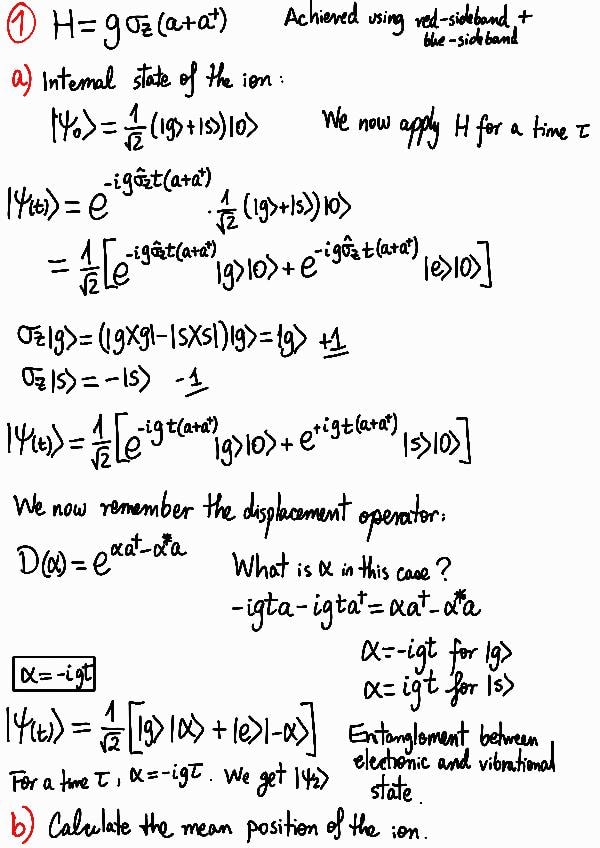 ① H = gσz(a+a†) Achieved using red-sideband + blue-sideband
a) Internal state of the ion:
|Ψ₀⟩ = 1/√2 (|g⟩+|s⟩)|0⟩ We now apply H for a time τ
|Ψ(t)⟩ = e^{-igσ̂zt(a+a†)} · 1/√2 (|g⟩+|s⟩)|0⟩
= 1/√2 [e^{-igσ̂zt(a+a†)} |g⟩|0⟩ + e^{-igσ̂zt(a+a†)} |e⟩|0⟩]
σz|g⟩ = (|g⟩⟨g|-|s⟩⟨s|)|g⟩ = |g⟩ +1
σz|s⟩ = -|s⟩ -1
|Ψ(t)⟩ = 1/√2 [e^{-igt(a+a†)} |g⟩|0⟩ + e^{+igt(a+a†)} |s⟩|0⟩]
We now remember the displacement operator:
D(α) = e^{αa†-α*a} What is α in this case?
-igta - igta† = αa† - α*a
α=-igt for |g⟩
α= igt for |s⟩
α = -igt
|Ψ(t)⟩ = 1/√2 [|g⟩|α⟩ + |e⟩|-α⟩] Entanglement between
electronic and vibrational
state.
For a time τ, α=-igτ. We get |Ψ₂⟩
b) Calculate the mean position of the ion.